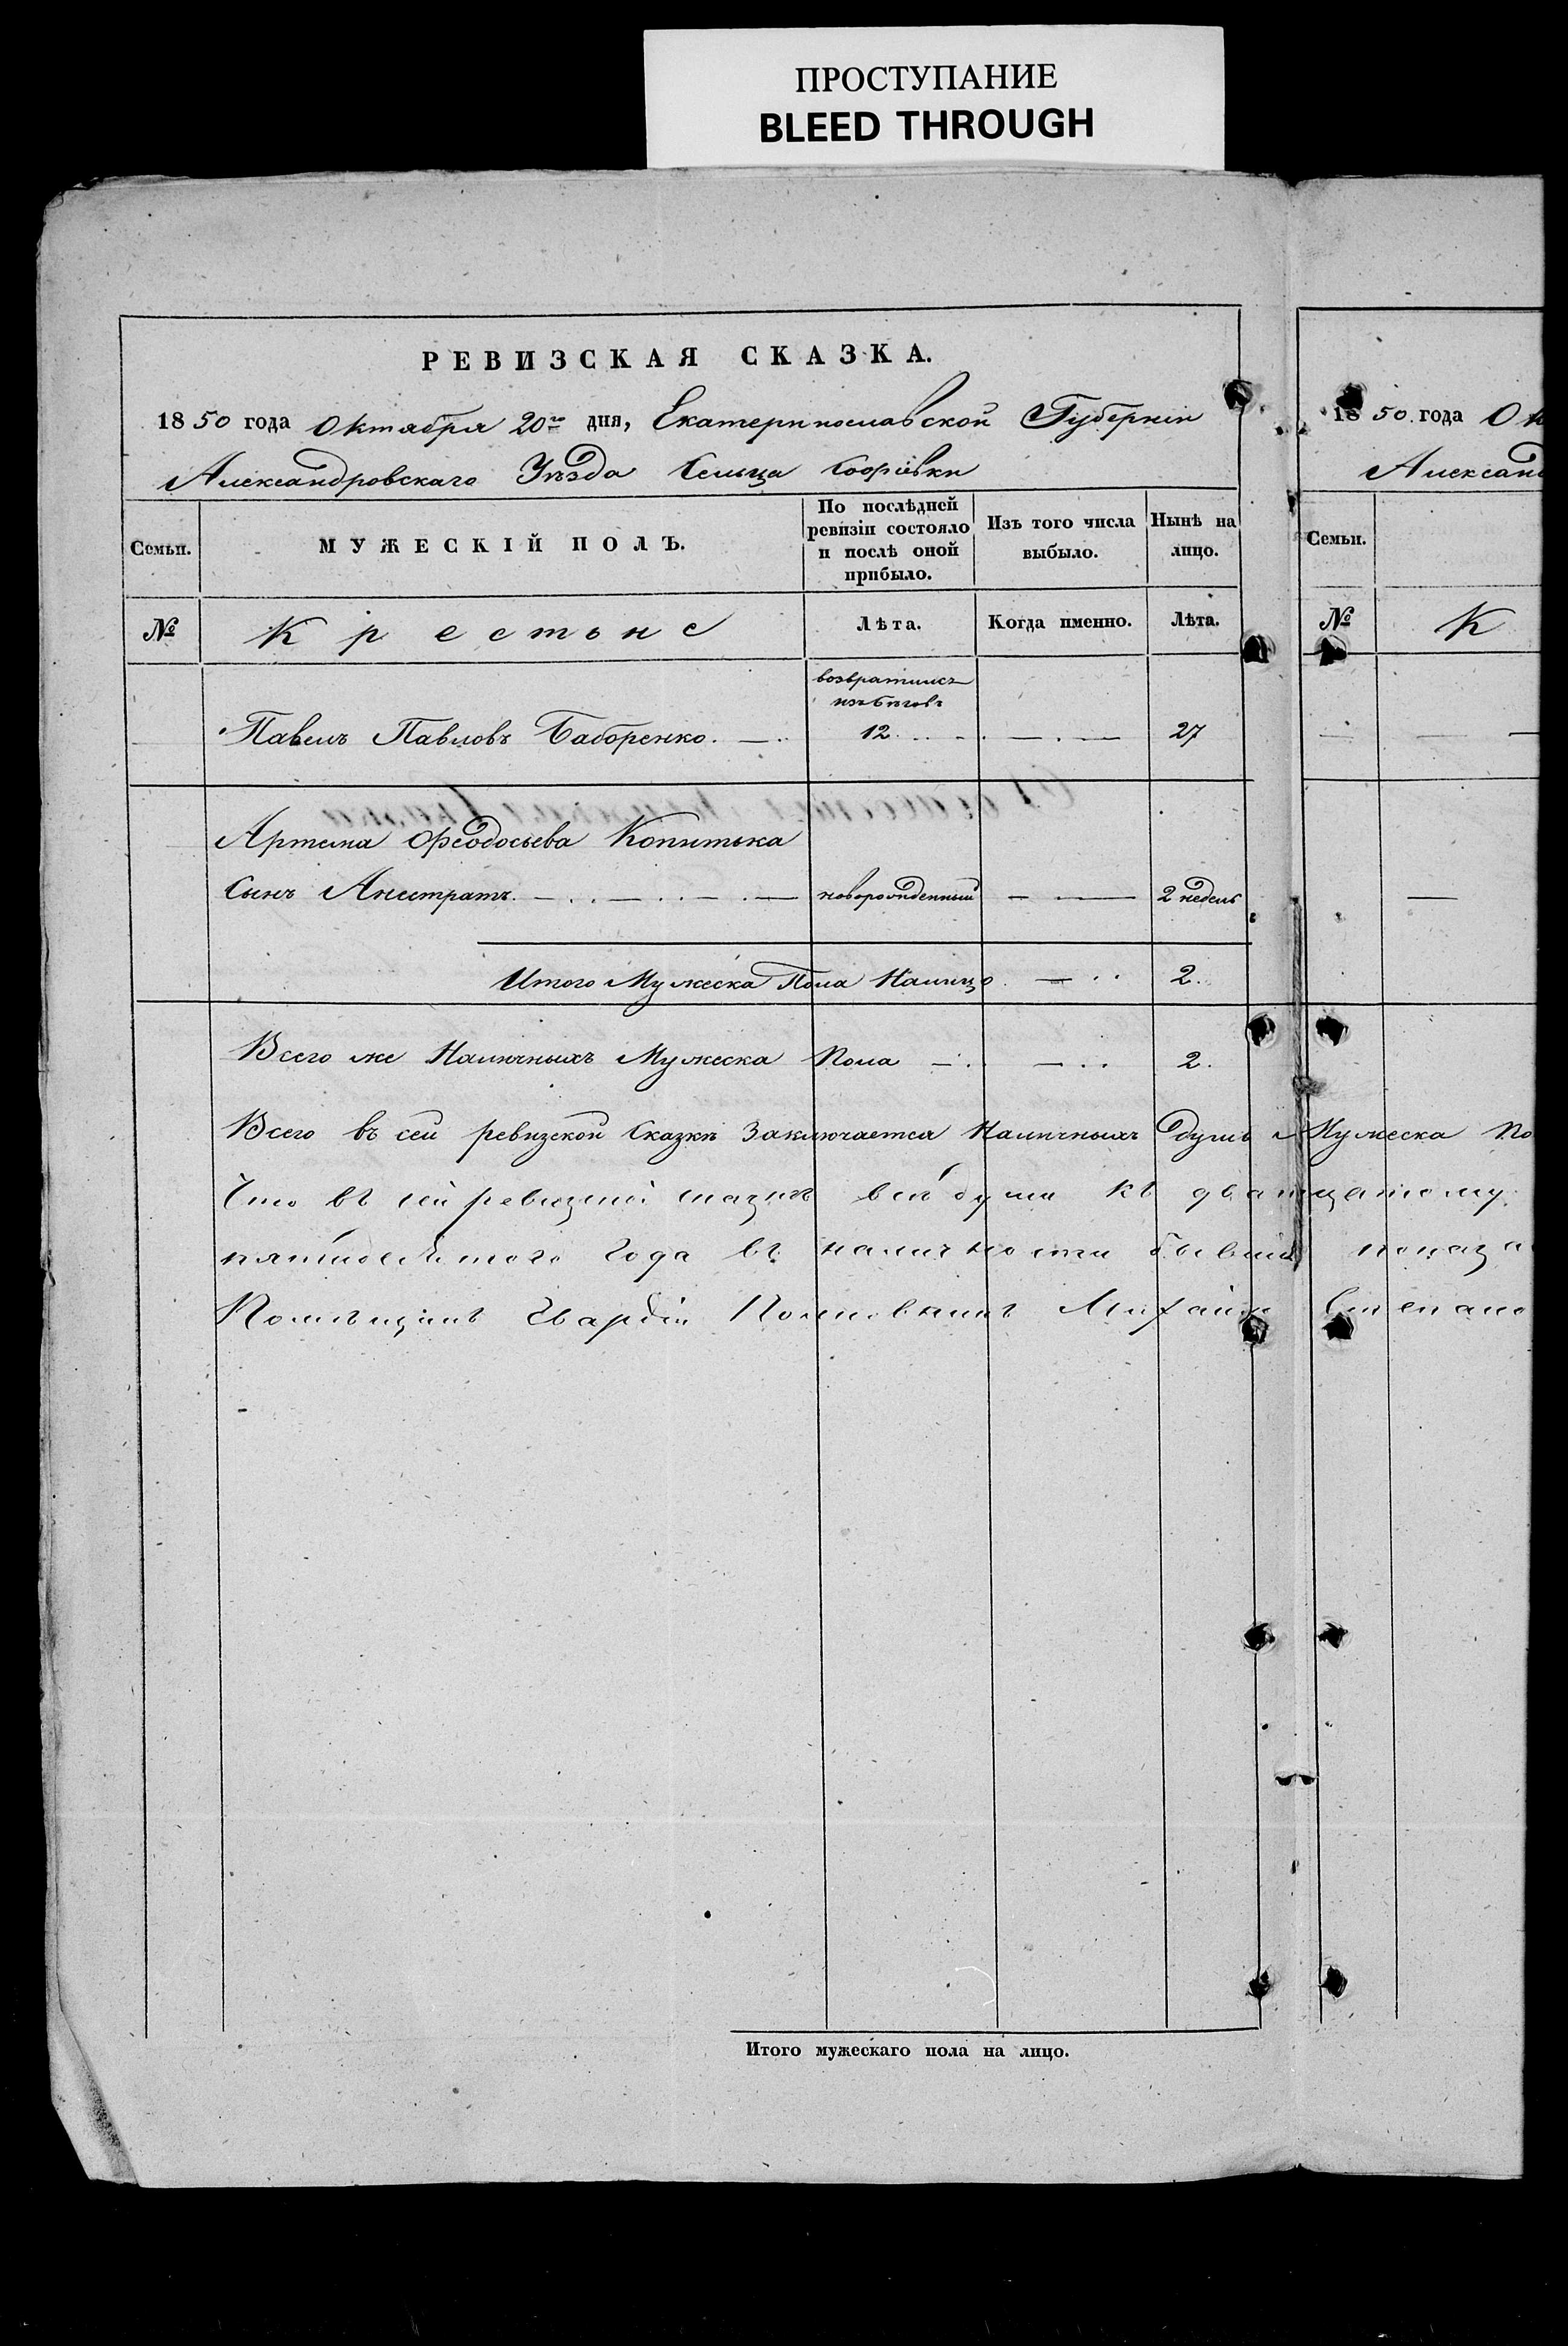 ПРОСТУПАНИЕ
BLEED THROUGH
РЕВИЗСКАЯ СКАЗКА.
1850 года Октября 20го дня, Екатеринославской Губерніи
Александровскаго Уѣзда Сельца Софіевки
Семьи.
МУЖЕСКІЙ ПОЛЪ.
По послѣдней
ревизіи состояло
и послѣ оной
прибыло.
Изъ того числа
выбыло.
Нынѣ на
лицо.
№
Крестьне
Лѣта.
Когда именно.
Лѣта.
возвратился
изъ бѣговъ
Павелъ Павловъ Баборенко. 12 27
Артема Феодосьева Копитька
Сынъ Анистратъ. новорожденный 2 недель
Итого Мужеска Пола Налицо 2.
Всего же Наличныхъ Мужеска Пола 2.
Всего въ сей ревизской Сказкѣ Заключается Наличныхъ душъ Мужеска По
Что въ сей ревизской сказкѣ всѣ души къ двадцатому
пятидесятого года въ наличности бывшіе показа
Помѣщикъ Гвардіи Полковникъ Михайло Степано
Итого мужескаго пола на лицо.
1850 года Ок
Александ
Семьи.
№
К